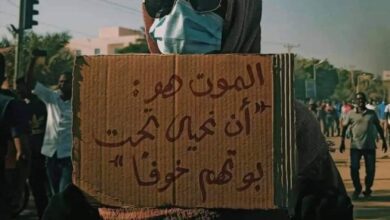 الموت هو:
"أن نحيا تحت
بوتهم خوفًا"